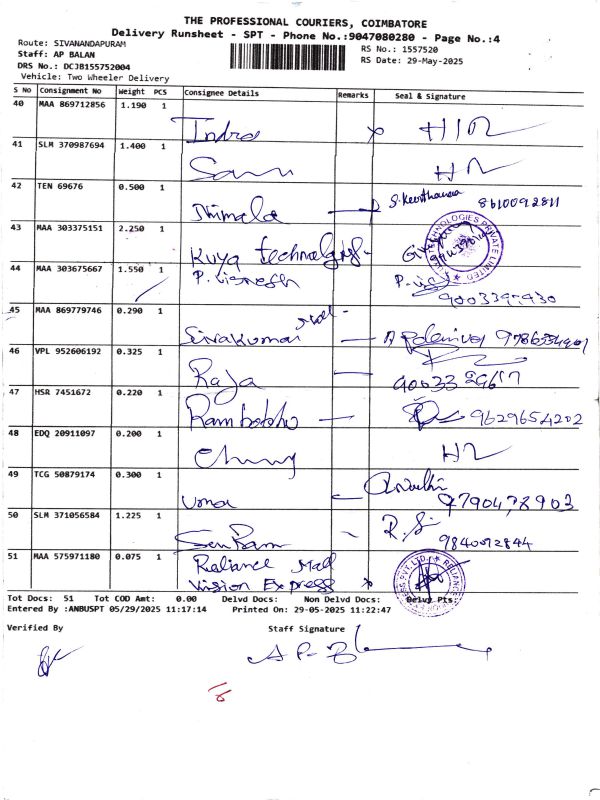 THE PROFESSIONAL COURIERS, COIMBATORE
Delivery Runsheet - SPT - Phone No.:9047080280 - Page No.:4
Route: SIVANANDAPURAM
Staff: AP BALAN
DRS No.: DCJB155752004
Vehicle: Two Wheeler Delivery
RS No.: 1557520
RS Date: 29-May-2025
S No Consignment No Weight PCS Consignee Details Remarks Seal & Signature
40 MAA 869712856 1.190 1 Indra
41 SLM 370987694 1.400 1
42 TEN 69676 0.500 1 Nirmala 8610092811
43 MAA 303375151 2.250 1
44 MAA 303675667 1.550 1 P. Vignesh
45 MAA 869779746 0.290 1 Sivakumar
46 VPL 952606192 0.325 1 Raja
47 HSR 7451672 0.220 1 9629654202
48 EDQ 20911097 0.200 1
49 TCG 50879174 0.300 1 Uma
50 SLM 371056584 1.225 1 9840072844
51 MAA 575971180 0.075 1 Reliance Mall
Vision Express
Tot Docs: 51 Tot COD Amt: 0.00 Delvd Docs: Non Delvd Docs: Delvd Pts:
Entered By :ANBUSPT 05/29/2025 11:17:14 Printed On: 29-05-2025 11:22:47
Verified By Staff Signature